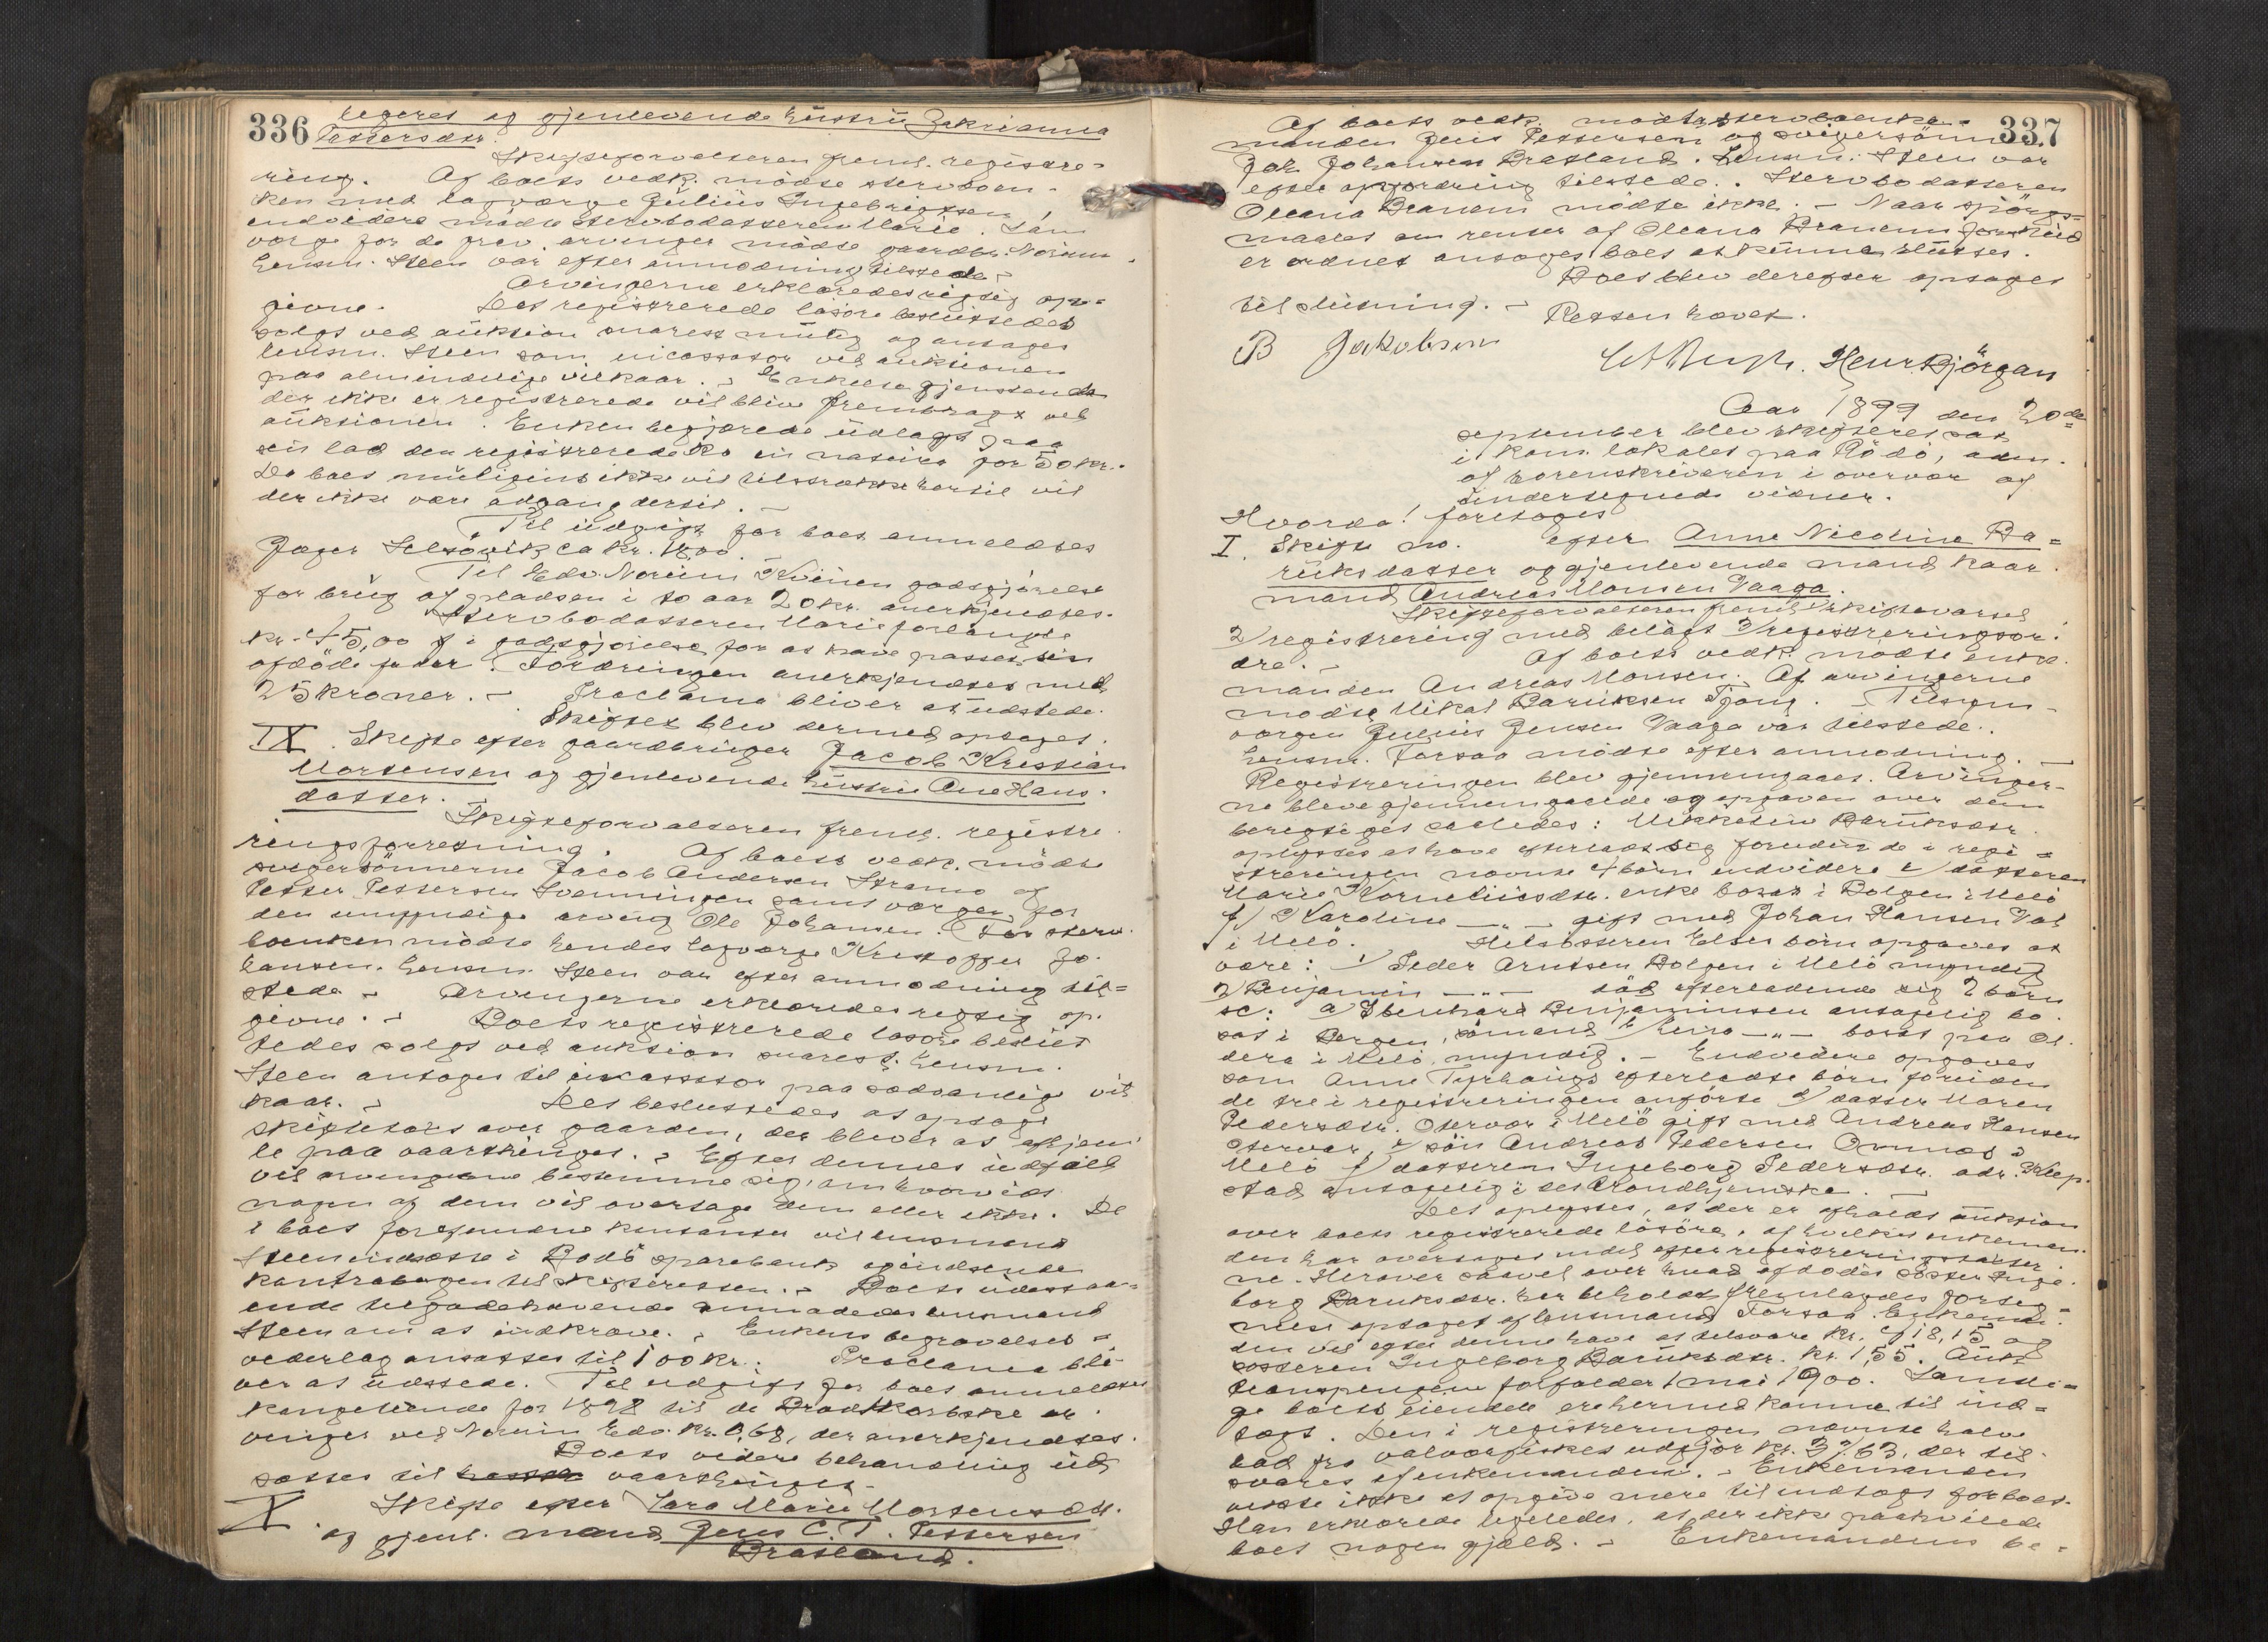 336
legeret og gjenlevende hustru Zakrianna
Pettersdtr.
Skifteforvalteren freml. registre-
ring. Af boets vedk. mødte stervboen-
ken med lagværge Julius Ingebrigtsen,
endvidere mødte stervbodatteren Marie. Som
værge for de frav. arvinger mødte gaardbr. Norum.
Lensm. Steen var efter anmodning tilstede.
Arvingerne erklæredes rigtig opi-
givne. Det registrerede løsøre besluttedes
solgt ved auktion snarest mulig og antages
lensm. Steen som incassator ved auktionen
paa almindelige vilkaar. - Enkelte gjenstande
der ikke er registrerede vil blive frembragt ved
auktionen. Enken begjærede udlagt paa
sin lod den registrerede ko in natura for 50 kr.
Da boet muligens ikke vil tilstrække hertil vil
der ikke være adgang dertil. -
Til udgift for boet anmeldtes
Jæger Selsøvik ca kr. 18,00.
Til Edv. Norum Kvinen godtgjørelse
for brug af pladsen i to aar 20 kr. anerkjendtes.
Stervbodatteren Marie forlangte
kr. 45,00 i godtgjørelse for at have passet sin
afdøde fader. Fordringen anerkjendtes med
25 kroner. - Proclama bliver at udstede.
Skiftet blev dermed optaget.
IX. Skifte efter gaardbruger Jacob Kristian
Mortensen og gjenlevende hustru Ane Hans-
datter.
Skifteforvalteren freml. registre-
ringsforretning. Af boets vedk. mødte
svigersønnerne Jacob Andersen Stramo og
Petter Pettersen Svenningen samt værgen for
den umyndige arving Ole Johansen. For sterv-
boenken mødte hendes lagværge Kristoffer Jo-
hansen. Lensm. Steen var efter anmodning til-
stede. - Arvingerne erklæredes rigtig op-
givne. - Boets registrerede løsøre beslut-
tedes solgt ved auktion snarest. Lensm.
Steen antages til incassator paa sædvanlige vil-
kaar. - Det besluttedes at optage
skiftetaxt over gaarden, der bliver at afhjem-
le paa vaarthinget. - Efter dennes udfald
vil arvingerne bestemme sig, om hvorvidt
nogen af dem vil overtage den eller ikke. De
i boet forefundne kontanter vil lensmand
Steen indsætte i Bodø sparebank og indsende
kontrabogen til skifteretten. - Boets udestaa-
ende tilgodehavende anmodedes lensmand
Steen om at indkræve. - Enkens begravelses-
vederlag ansattes til 100 kr. Proclama bli-
ver at udstede. Til udgift for boet anmeldtes
kongetiende for 1898 til de Brodtkorbske ar-
vinger ved Norum Edv. kr. 0,68, der anerkjendtes.
Boets videre behandling ud-
sattes til vaarthinget.
X. Skifte efter Sara Marie Mortensdtr.
og gjenl. mand Jens C. T. Pettersen
Bratland.
337
Af boets vedk. mødte stervboenke-
manden Jens Pettersen og svigersønnen
Joh. Johansen Bratland. Lensm. Steen var
efter opfordring tilstede. Stervbodatteren
Oleana Beanem mødte ikke. - Naar spørgs-
maalet om renter af Oleana forskud
er ordnet antages boet at kunne sluttes.
Boet blev derefter optaget
til slutning. - Retten hævet.
B Jakobsen
Henr. Bjørgan
Aar 1899 den 20de
september blev skifteret sat
i kom. lokalet paa Rødø, adm.
af sorenskriveren i overvær af
undertegnede vidner.
Hvorda! foretoges
I. Skifte no. efter Anne Nicoline Ba-
ruksdatter og gjenlevende mand kaar-
mand Andreas Monsen Vaaga.
Skifteforvalteren freml. 1/ skiftevarsel
2/ registrering med belagt 3/ registreringsor-
dre. - Af boets vedk. mødte enke-
manden Andreas Monsen. Af arvingerne
mødte Mikal Baruksen Tjong. - Tilsyns-
værgen Julius Jensen Vaaga var tilstede.
Lensm. Forsaa mødte efter anmodning. -
Registreringen blev gjennemgaaet. Arvinger-
ne bleve gjennemgaaede og opgaven over dem
berigtiges saaledes: Mikkeline Baruksdtr.
oplystes at have efterladt sig foruden de i regi-
streringen nævnte 4 børn endvidere e/ datteren
Marie Korneliusdtr. enke bosat i Bolgen i Melø
f/ Karoline —"— gift med Johan Hansen Val
i Melø. Helsøsteren Elses børn opgaves at
være: 1/ Peder Arntsen Bolgen i Melø myndig
2/ Benjamin —"— død efterladende sig 2 børn
sc: a/ Ibenhard Benjaminsen antagelig bo-
sat i Bergen, sømand b/ —"— bosat paa Ol-
dera i Melø, myndig. - Endvidere opgaves
som Anne Tyrhaugs efterladte børn foruden
de tre i registreringen anførte d/ datter Maren
Pedersdtr. Otervær i Melø gift med Andreas Hansen
Otervær, e/ søn Andreas Pedersen Ornnes i
Melø f/ datteren Ingeborg Pedersdtr. adr. Klep-
stad antagelig i det Trondhjemske. -
Det oplystes, at der er afholdt auktion
over boets registrerede løsøre, af hvilket enkeman-
den har overtaget endel efter registreringstaxter-
ne. Herover saavel over hvad afdødes søster Inge-
borg Baruksdtr. har beholdt fremlagdes forteg-
nelse optaget af lensmand Forsaa. Enkeman-
den vil efter denne have at tilsvare kr. 418,15 og
søsteren Ingeborg Baruksdtr. kr. 1,55. Auk-
tionspengene forfalder 1 mai 1900. Samtli-
ge boets eiendele ere hermed komne til ind-
tægt. Den i registreringen nævnte halve
lod fra vaarfisket udgjør kr. 37,63, der til-
svares af enkemanden. - Enkemanden
vidste ikke at opgive mere til indtægt for boet.
Han erklærede ligeledes, at der ikke paahvilede
boet nogen gjæld. - Enkemandens be-